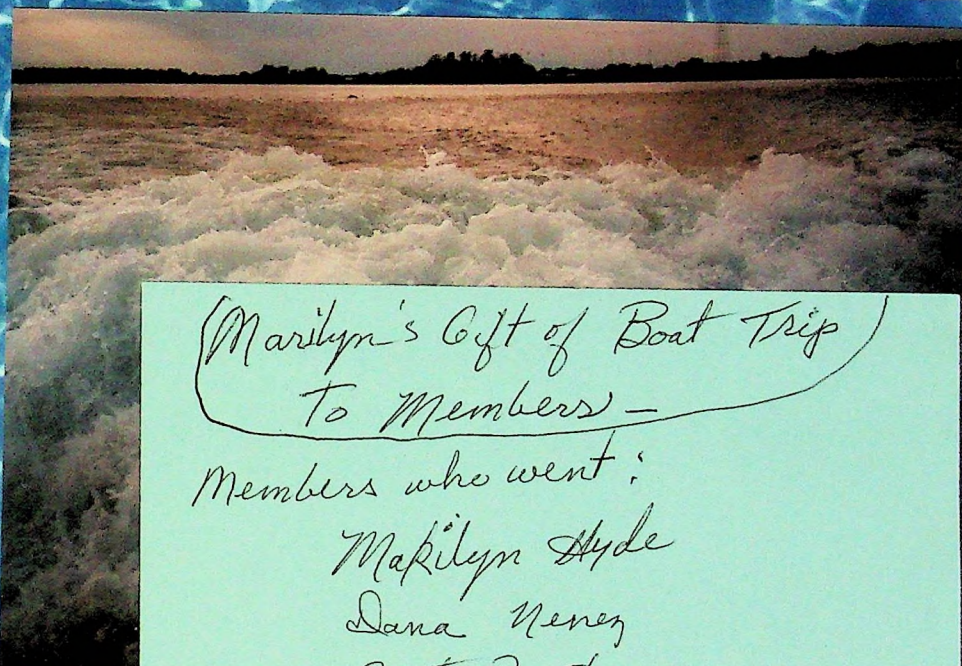 Marilyn's Gift of Boat Trip
To Members –
Members who went :
Marilyn Hyde
Dana Nenez